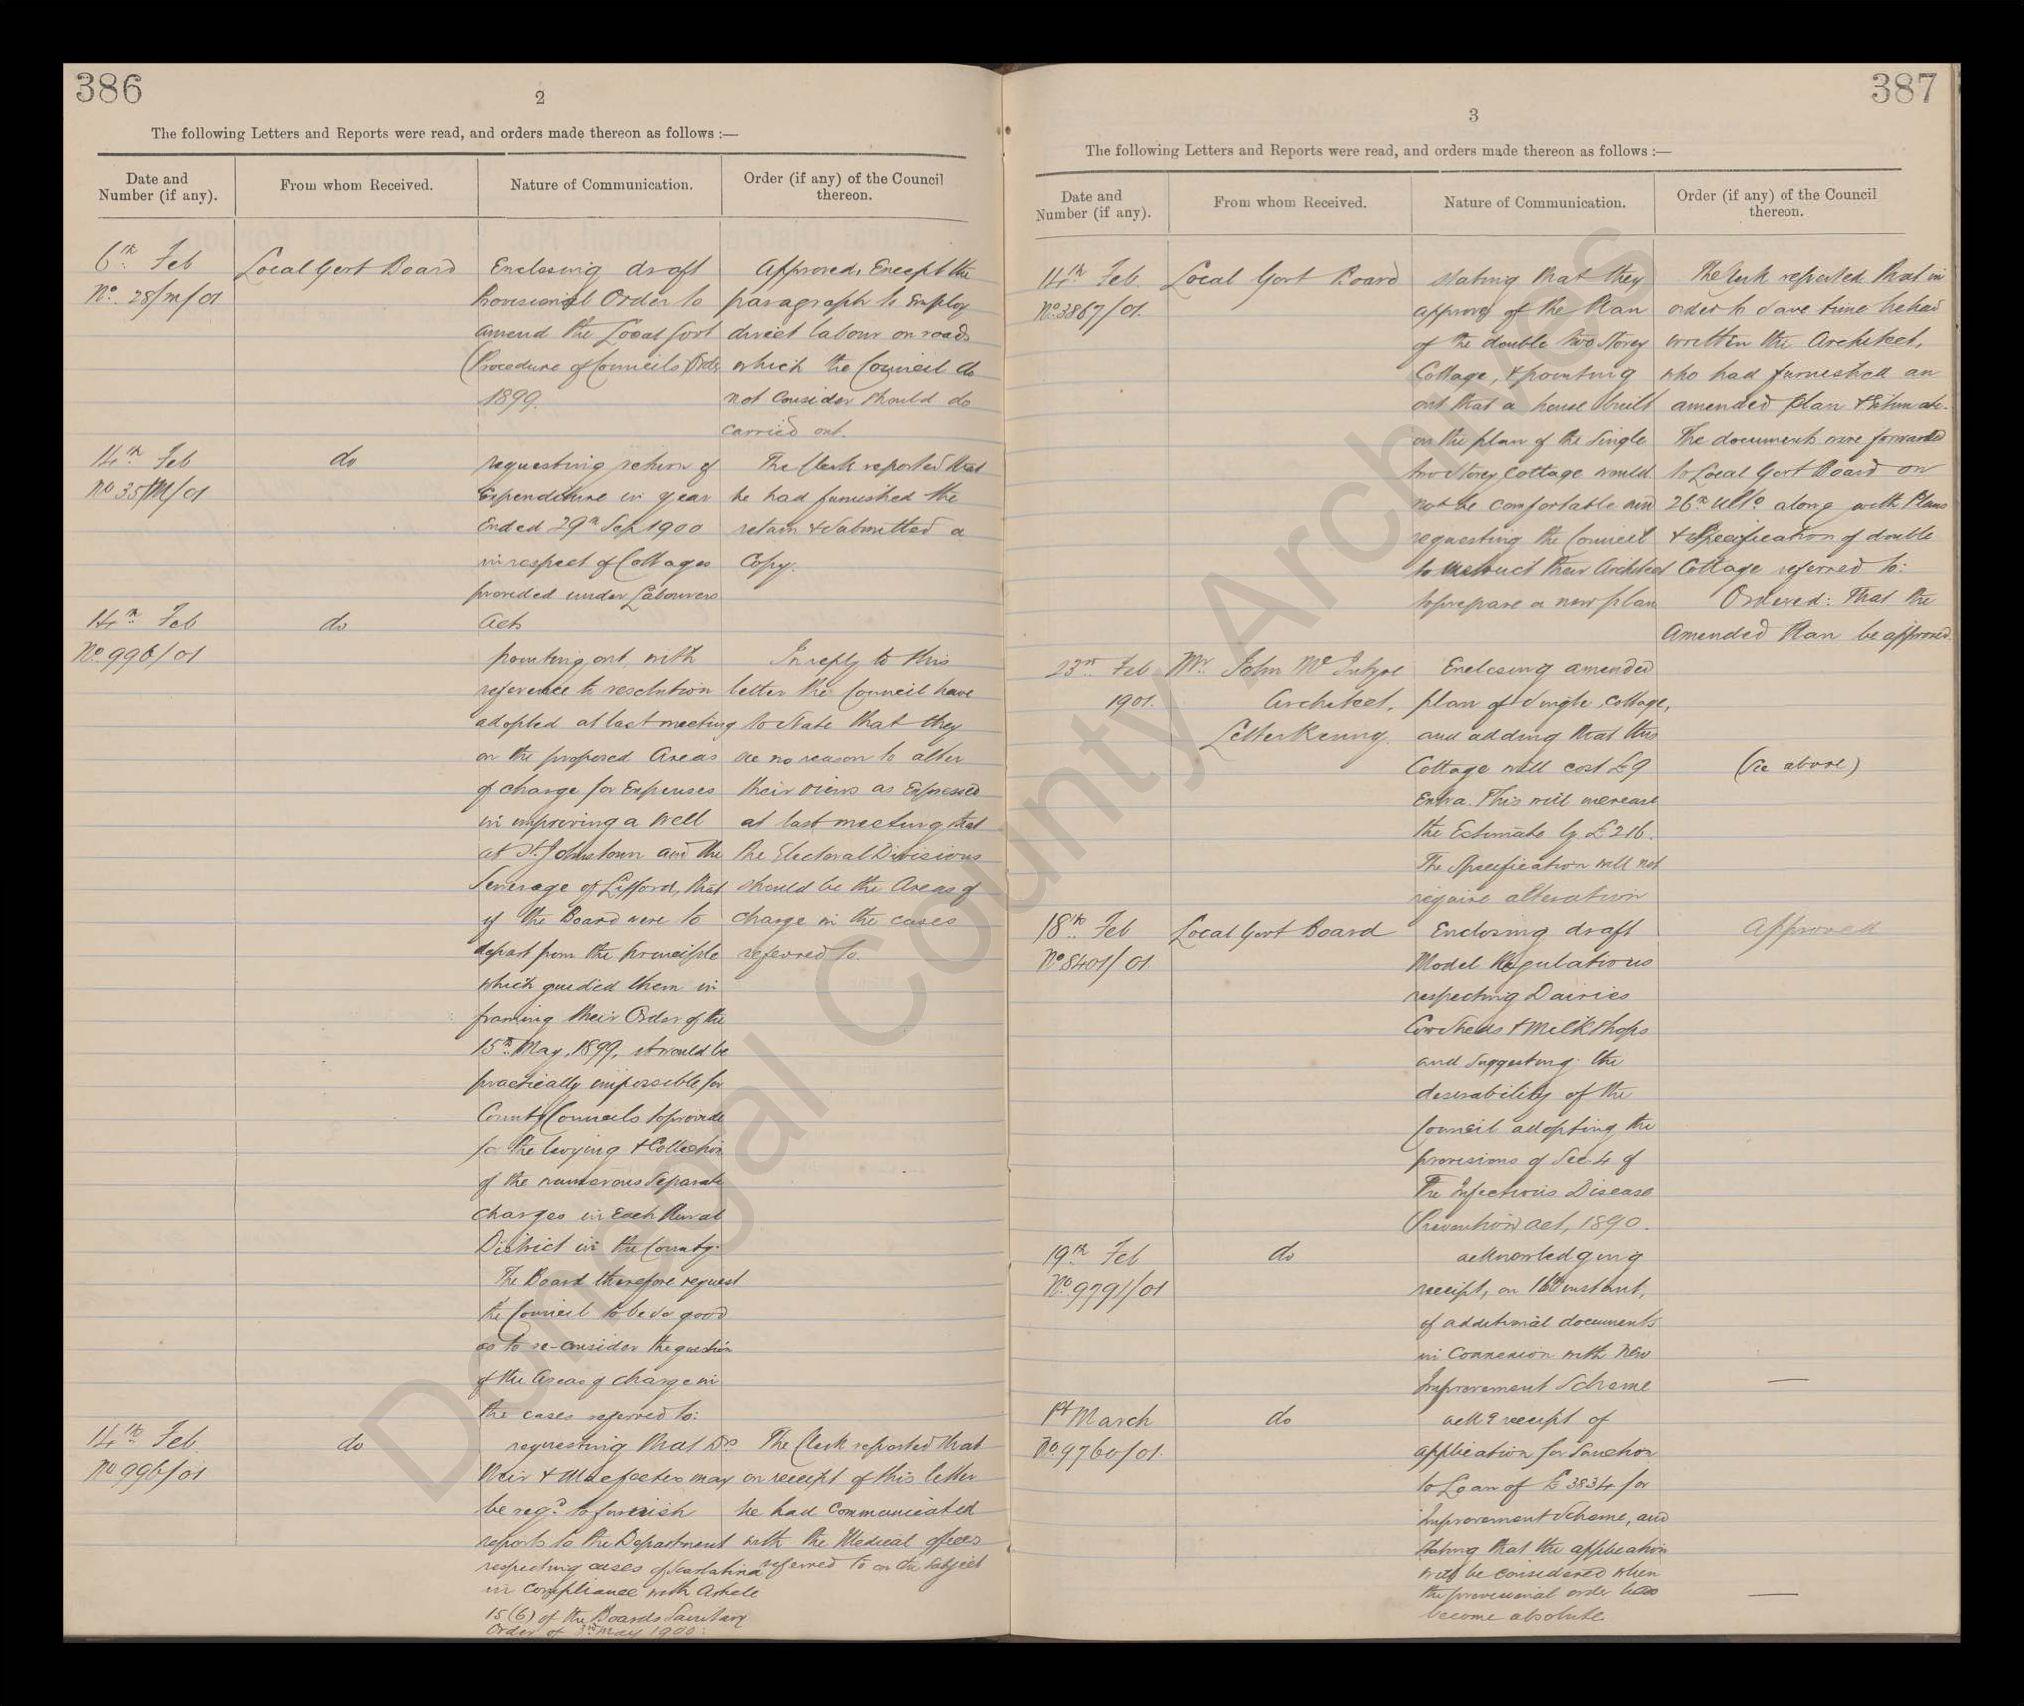 386
2
The following Letters and Reports were read, and orders made thereon as follows :—
Date and Number (if any).
From whom Received.
Nature of Communication.
Order (if any) of the Council thereon.
6th Feb
No. 28/M/01
Local Govt Board
Enclosing draft
Provisional Order to
amend the Local Govt
(Procedure of Councils) Order
1899.
Approved, Except the
paragraph to Employ
direct labour on roads
which the Council do
not consider should do
carried out.
14th Feb
No 35/M/01
do
requesting return of
Expenditure in year
Ended 29th Sep 1900
in respect of Cottages
provided under Labourers
Acts
The Clerk reported that
he had furnished the
return & submitted a
Copy.
14th Feb
No. 996/01
do
pointing out, with
reference to resolution
adopted at last meeting
on the proposed Areas
of charge for Expenses
in improving a well
at St. Johnstown and the
Sewerage of Lifford, that
if the Board were to
depart from the principle
which guided them in
framing their Order of the
15th May, 1899, it would be
practically impossible for
County Councils to provide
for the levying & Collection
of the numerous Separate
charges in Each Rural
District in the County.
The Board therefore request
the Council to be so good
as to re-consider the question
of the Areas of charge in
the cases referred to:
In reply to this
letter the Council have
to state that they
see no reason to alter
their views as Expressed
at last meeting that
the Electoral Divisions
should be the Areas of
charge in the cases
referred to.
14th Feb.
No 996/01
do
requesting that Drs
Weir & may
be reqd. to furnish
reports to the Department
respecting cases of Scarlatina
in compliance with Article
15(6) of the Boards Sanitary
Order of 3rd May 1900:
The Clerk reported that
on receipt of this letter
he had communicated
with the Medical officers
referred to on the subject
387
3
The following Letters and Reports were read, and orders made thereon as follows :—
Date and Number (if any).
From whom Received.
Nature of Communication.
Order (if any) of the Council thereon.
14th Feb.
No. 3867/01.
Local Govt Board
stating that they
approve of the Plan
of the double two Storey
Cottage, & pointing
out that a house built
on the plan of the Single
two Storey Cottage would
not be comfortable and
requesting the Council
to instruct their Architect
to prepare a new plan
The Clerk reported that in
order to save time he had
written the Architect,
who had furnished an
amended plan & Estimate.
The documents were forwarded
to Local Govt Board on
26th Ulto along with Plans
& Specification of double
Cottage referred to:
Ordered: That the
Amended Plan be approved
23rd Feb
1901.
Mr. John McIntyre
Architect,
Letterkenny.
Enclosing amended
plan of single Cottage,
and adding that this
Cottage will cost £9
Extra. This will increase
the Estimate by £216.
The Specification will not
require alteration
(See above)
18th Feb
No. 8401/01.
Local Govt Board
Enclosing draft
Model Regulations
respecting Dairies
Cow Sheds & Milk Shops
and suggesting the
desirability of the
Council adopting the
provisions of Sec. 4 of
The Infectious Disease
Prevention Act, 1890.
Approved
19th Feb
No. 9791/01
do
acknowledging
receipt, on 16th instant,
of additional documents
in Connexion with New
Improvement Scheme
—
1st March
No. 9760/01.
do
ackg receipt of
application for Sanction
to Loan of £3834 for
Improvement Scheme, and
stating that the application
will be considered when
the provisional order has
become absolute.
—
Donegal County Archives